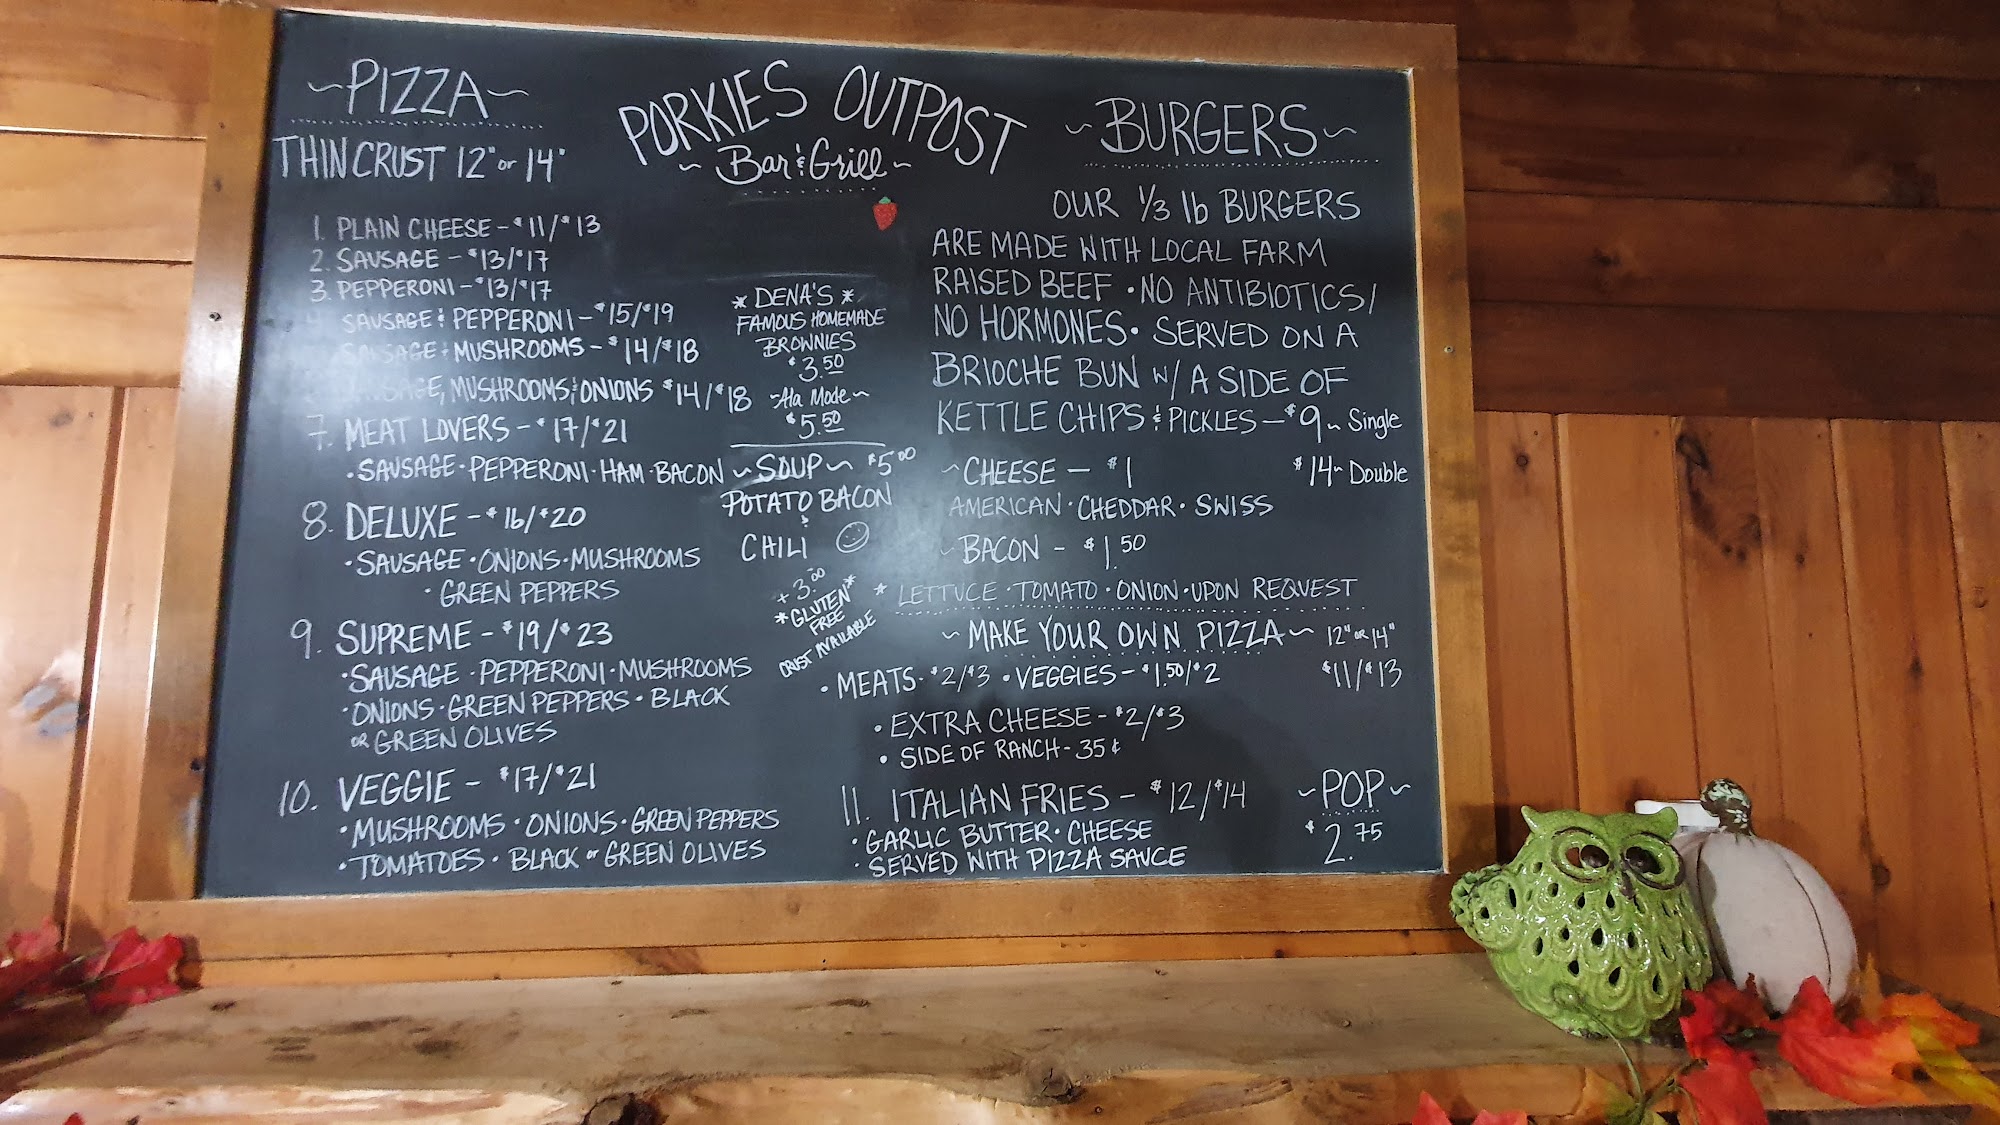 ~PIZZA~
THIN CRUST 12" or 14"
1. PLAIN CHEESE - $11/$13
2. SAUSAGE - $13/$17
3. PEPPERONI - $13/$17
SAUSAGE & PEPPERONI - $15/$19
SAUSAGE & MUSHROOMS - $14/$18
SAUSAGE, MUSHROOMS & ONIONS $14/$18
7. MEAT LOVERS - $17/$21
• SAUSAGE • PEPPERONI • HAM • BACON
8. DELUXE - $16/$20
• SAUSAGE • ONIONS • MUSHROOMS
• GREEN PEPPERS
9. SUPREME - $19/$23
• SAUSAGE • PEPPERONI • MUSHROOMS
• ONIONS • GREEN PEPPERS • BLACK
OR GREEN OLIVES
10. VEGGIE - $17/$21
• MUSHROOMS • ONIONS • GREEN PEPPERS
• TOMATOES • BLACK or GREEN OLIVES
PORKIES OUTPOST
~ Bar & Grill ~
* DENA'S *
FAMOUS HOMEMADE
BROWNIES
$3.50
~Ala Mode~
$5.50
~SOUP~ $5.00
POTATO BACON
&
CHILI
+3.00
*GLUTEN*
FREE
CRUST AVAILABLE
~BURGERS~
OUR 1/3 lb BURGERS
ARE MADE WITH LOCAL FARM
RAISED BEEF • NO ANTIBIOTICS/
NO HORMONES • SERVED ON A
BRIOCHE BUN W/ A SIDE OF
KETTLE CHIPS & PICKLES - $9 ~ Single
~CHEESE - $1 $14 ~ Double
AMERICAN • CHEDDAR • SWISS
~BACON - $1.50
* LETTUCE • TOMATO • ONION • UPON REQUEST
~MAKE YOUR OWN PIZZA~ 12" OR 14"
• MEATS - $2/$3 • VEGGIES - $1.50/$2 $11/$13
• EXTRA CHEESE - $2/$3
• SIDE OF RANCH - 35¢
11. ITALIAN FRIES - $12/$14
• GARLIC BUTTER • CHEESE
• SERVED WITH PIZZA SAUCE
~POP~
$2.75